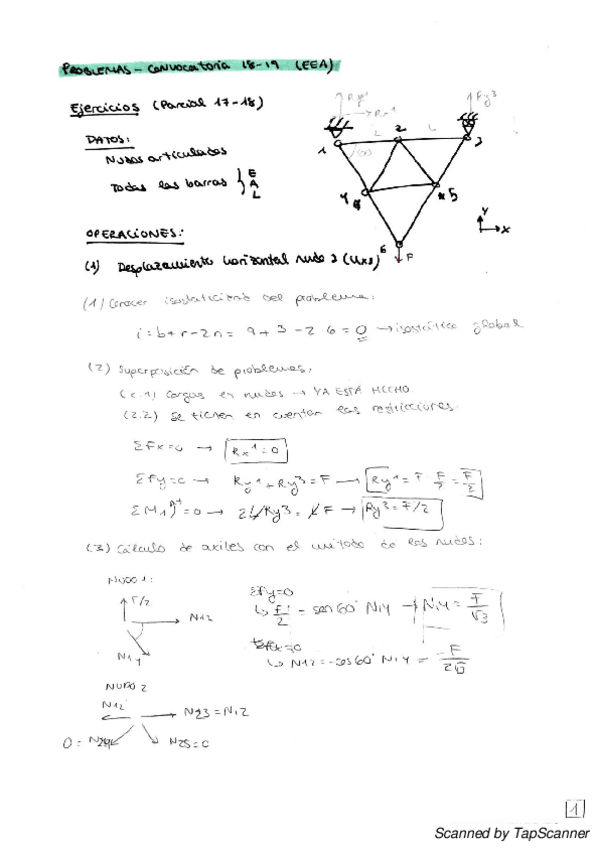 PROBLEMAS - Convocatoria 18-19 (EEA)
Ejercicios (Parcial 17-18)
DATOS:
Nudos articulados
Todas las barras } E A L
Ry¹
Rx¹
Ry³
L
L
60
1
2
3
4
5
6
F
Y
X
OPERACIONES:
(1) Desplazamiento horizontal nudo 3 (Ux3)
(1) Conocer isostaticidad del problema:
i = b + r - 2n = 9 + 3 - 2·6 = 0 → isostático global
(2) Superposición de problemas:
(2.1) Cargas en nudos → YA ESTÁ HECHO
(2.2) Se tienen en cuentan las restricciones:
ΣFx=0 → Rx¹=0
ΣFy=0 → Ry¹+Ry³=F → Ry¹=F-F/2=F/2
ΣM1)=0 → 2LRy³=LF → Ry³=F/2
(3) Cálculo de axiles con el método de los nudos:
NUDO 1:
F/2
N12
N14
ΣFy=0
↳ F/2 = sen60° N14 → N14 = F/√3
ΣFx=0
↳ N12 = -cos60° N14 = -F/2√3
NUDO 2
N12
N23=N12
0=N24
N25=0
1
Scanned by TapScanner